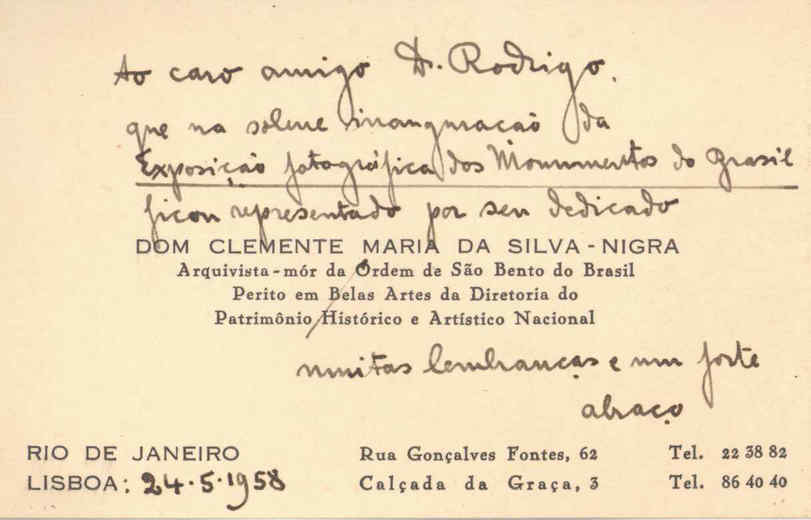 Ao caro amigo Dr. Rodrigo,
que na solene inauguração da
Exposição fotográfica dos Monumentos do Brasil
ficou representado por seu dedicado
DOM CLEMENTE MARIA DA SILVA-NIGRA
Arquivista-mór da Ordem de São Bento do Brasil
Perito em Belas Artes da Diretoria do
Patrimônio Histórico e Artístico Nacional
muitas lembranças e um forte
abraço
RIO DE JANEIRO Rua Gonçalves Fontes, 62 Tel. 22 38 82
LISBOA: 24.5.1958 Calçada da Graça, 3 Tel. 86 40 40